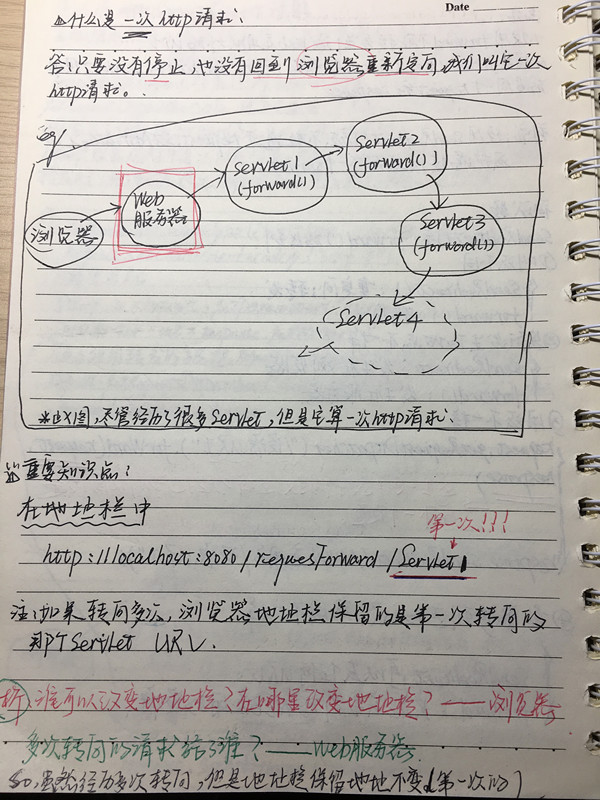 Date
什么是一次http请求:
答:只要没有停止,也没有回到浏览器重新定向,我们叫它一次
http请求。
eg/
浏览器
Web
服务器
Servlet1
(forward())
Servlet2
(forward())
Servlet3
(forward())
Servlet4
*此图,尽管经历了很多Servlet,但是它算一次http请求.
重要知识点:
在地址栏中
第一次!!!
http://localhost:8080/requesForward/Servlet1
注:如果转向多次,浏览器地址栏保留的是第一次转向的
那个Servlet URL.
析 谁可以改变地址栏?在哪里改变地址栏?——浏览器
多次转向的请求给了谁?——Web服务器
So,虽然经历多次转向,但是地址栏保留地址不变(第一次的)